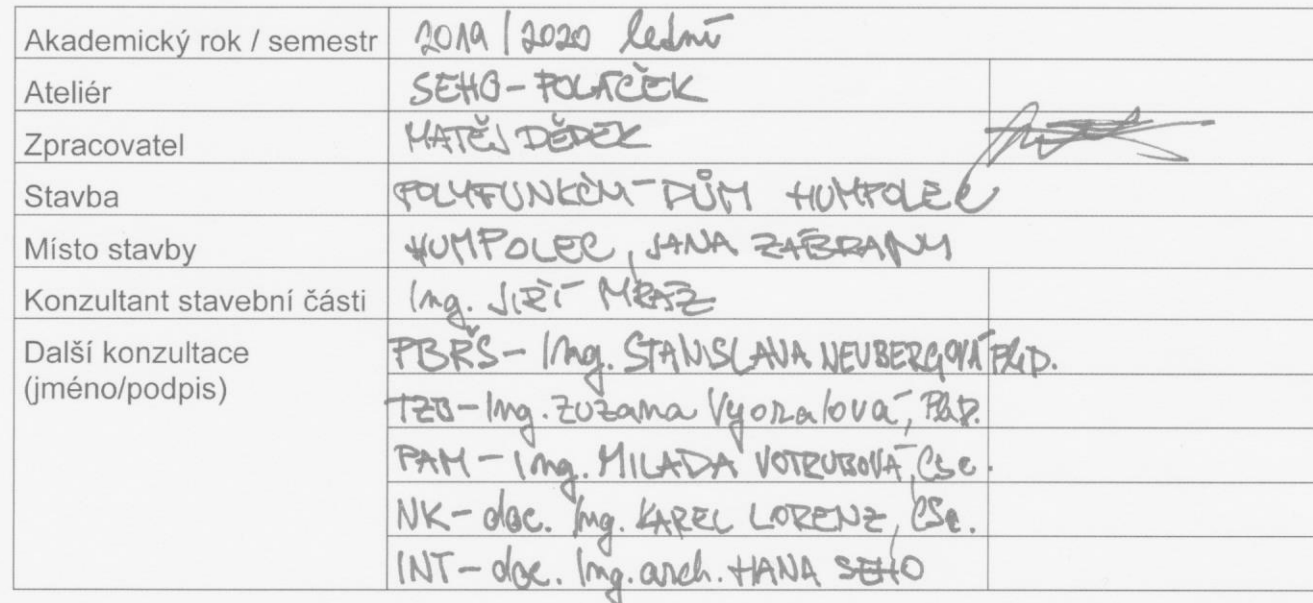 Akademický rok / semestr 2019 / 2020 letní
Ateliér SEHO - POLÁČEK
Zpracovatel MATĚJ DĚDEK
Stavba POLYFUNKČNÍ DŮM HUMPOLEC
Místo stavby HUMPOLEC, JANA ZÁBRANY
Konzultant stavební části Ing. JIŘÍ MRÁZ
Další konzultace PBŘS - Ing. STANISLAVA NEUBERGOVÁ Ph.D.
(jméno/podpis) TZB - Ing. Zuzana Vyoralová, Ph.D.
PAM - Ing. MILADA VOTRUBOVÁ, CSc.
NK - doc. Ing. KAREL LORENZ, CSc.
INT - doc. Ing. arch. HANA SEHO